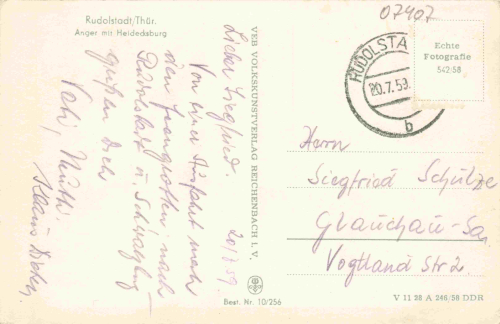 Rudolstadt/Thür.
Anger mit Heidedsburg
07407
Echte
Fotografie
542/58
RUDOLSTA
20.7.59.
b
20/7.59.
Lieber Siegfried.
Von einer
den
nach
Rudolstadt u. Schwarzburg
grüßen Dich
Vati, Mutti.
Klaus
VEB VOLKSKUNSTVERLAG REICHENBACH I. V.
Best. Nr. 10/256
Herrn
Siegfried Schulze
Glauchau-Sa
Vogtland Str 2.
V 11 28 A 246/58 DDR